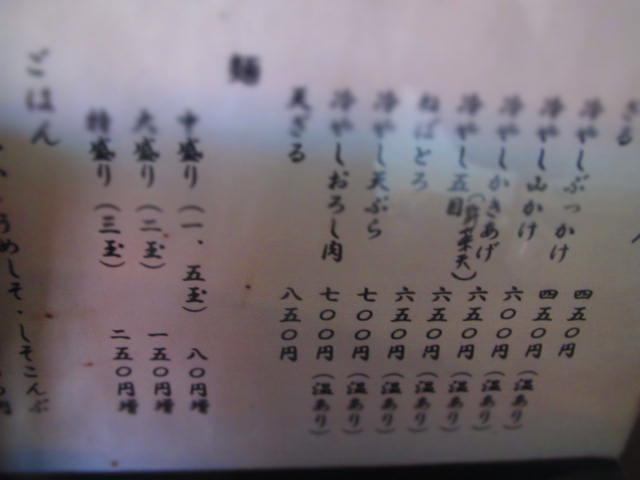 ざる 四五〇円
冷やしぶっかけ 四五〇円（温あり）
冷やし山かけ 六〇〇円（温あり）
冷やしかきあげ（野菜天） 六五〇円（温あり）
冷やし五目 六五〇円（温あり）
ねばとろ 六五〇円（温あり）
冷やし天ぷら 七〇〇円（温あり）
冷やしおろし肉 七〇〇円（温あり）
天ざる 八五〇円
麺
中盛り（一、五玉） 八〇円増
大盛り（二玉） 一五〇円増
特盛り（三玉） 二五〇円増
ごはん
うめしそ・しそこんぶ